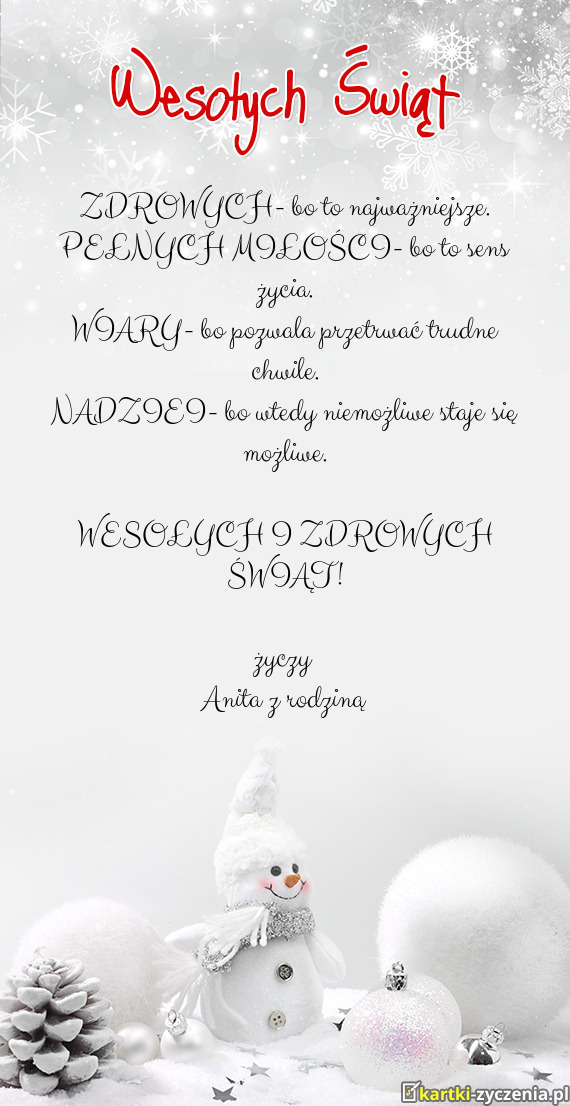 Wesołych Świąt
ZDROWYCH- bo to najważniejsze.
PEŁNYCH MIŁOŚCI- bo to sens
życia.
WIARY- bo pozwala przetrwać trudne
chwile.
NADZIEI- bo wtedy niemożliwe staje się
możliwe.
WESOŁYCH I ZDROWYCH
ŚWIĄT!
życzy
Anita z rodziną
kartki-zyczenia.pl